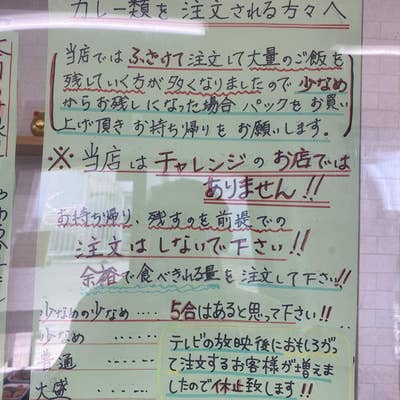 カレー類を注文される方々へ
当店では ふざけて注文して大量のご飯を
残していく方が多くなりましたので 少なめ
からお残しになった場合 パックをお買い
上げ頂き お持ち帰りをお願いします。
※ 当店はチャレンジのお店では
ありません!!
お持ち帰り、残すのを前提での
注文はしないで下さい!!
余裕で食べきれる量を注文して下さい!!
少なめの少なめ ‥‥ 5合はあると思って下さい!!
少なめ ‥‥‥
普通 ‥‥‥
大盛 ‥‥‥
テレビの放映後におもしろがっ
て注文するお客様が増えま
したので休止致します!!